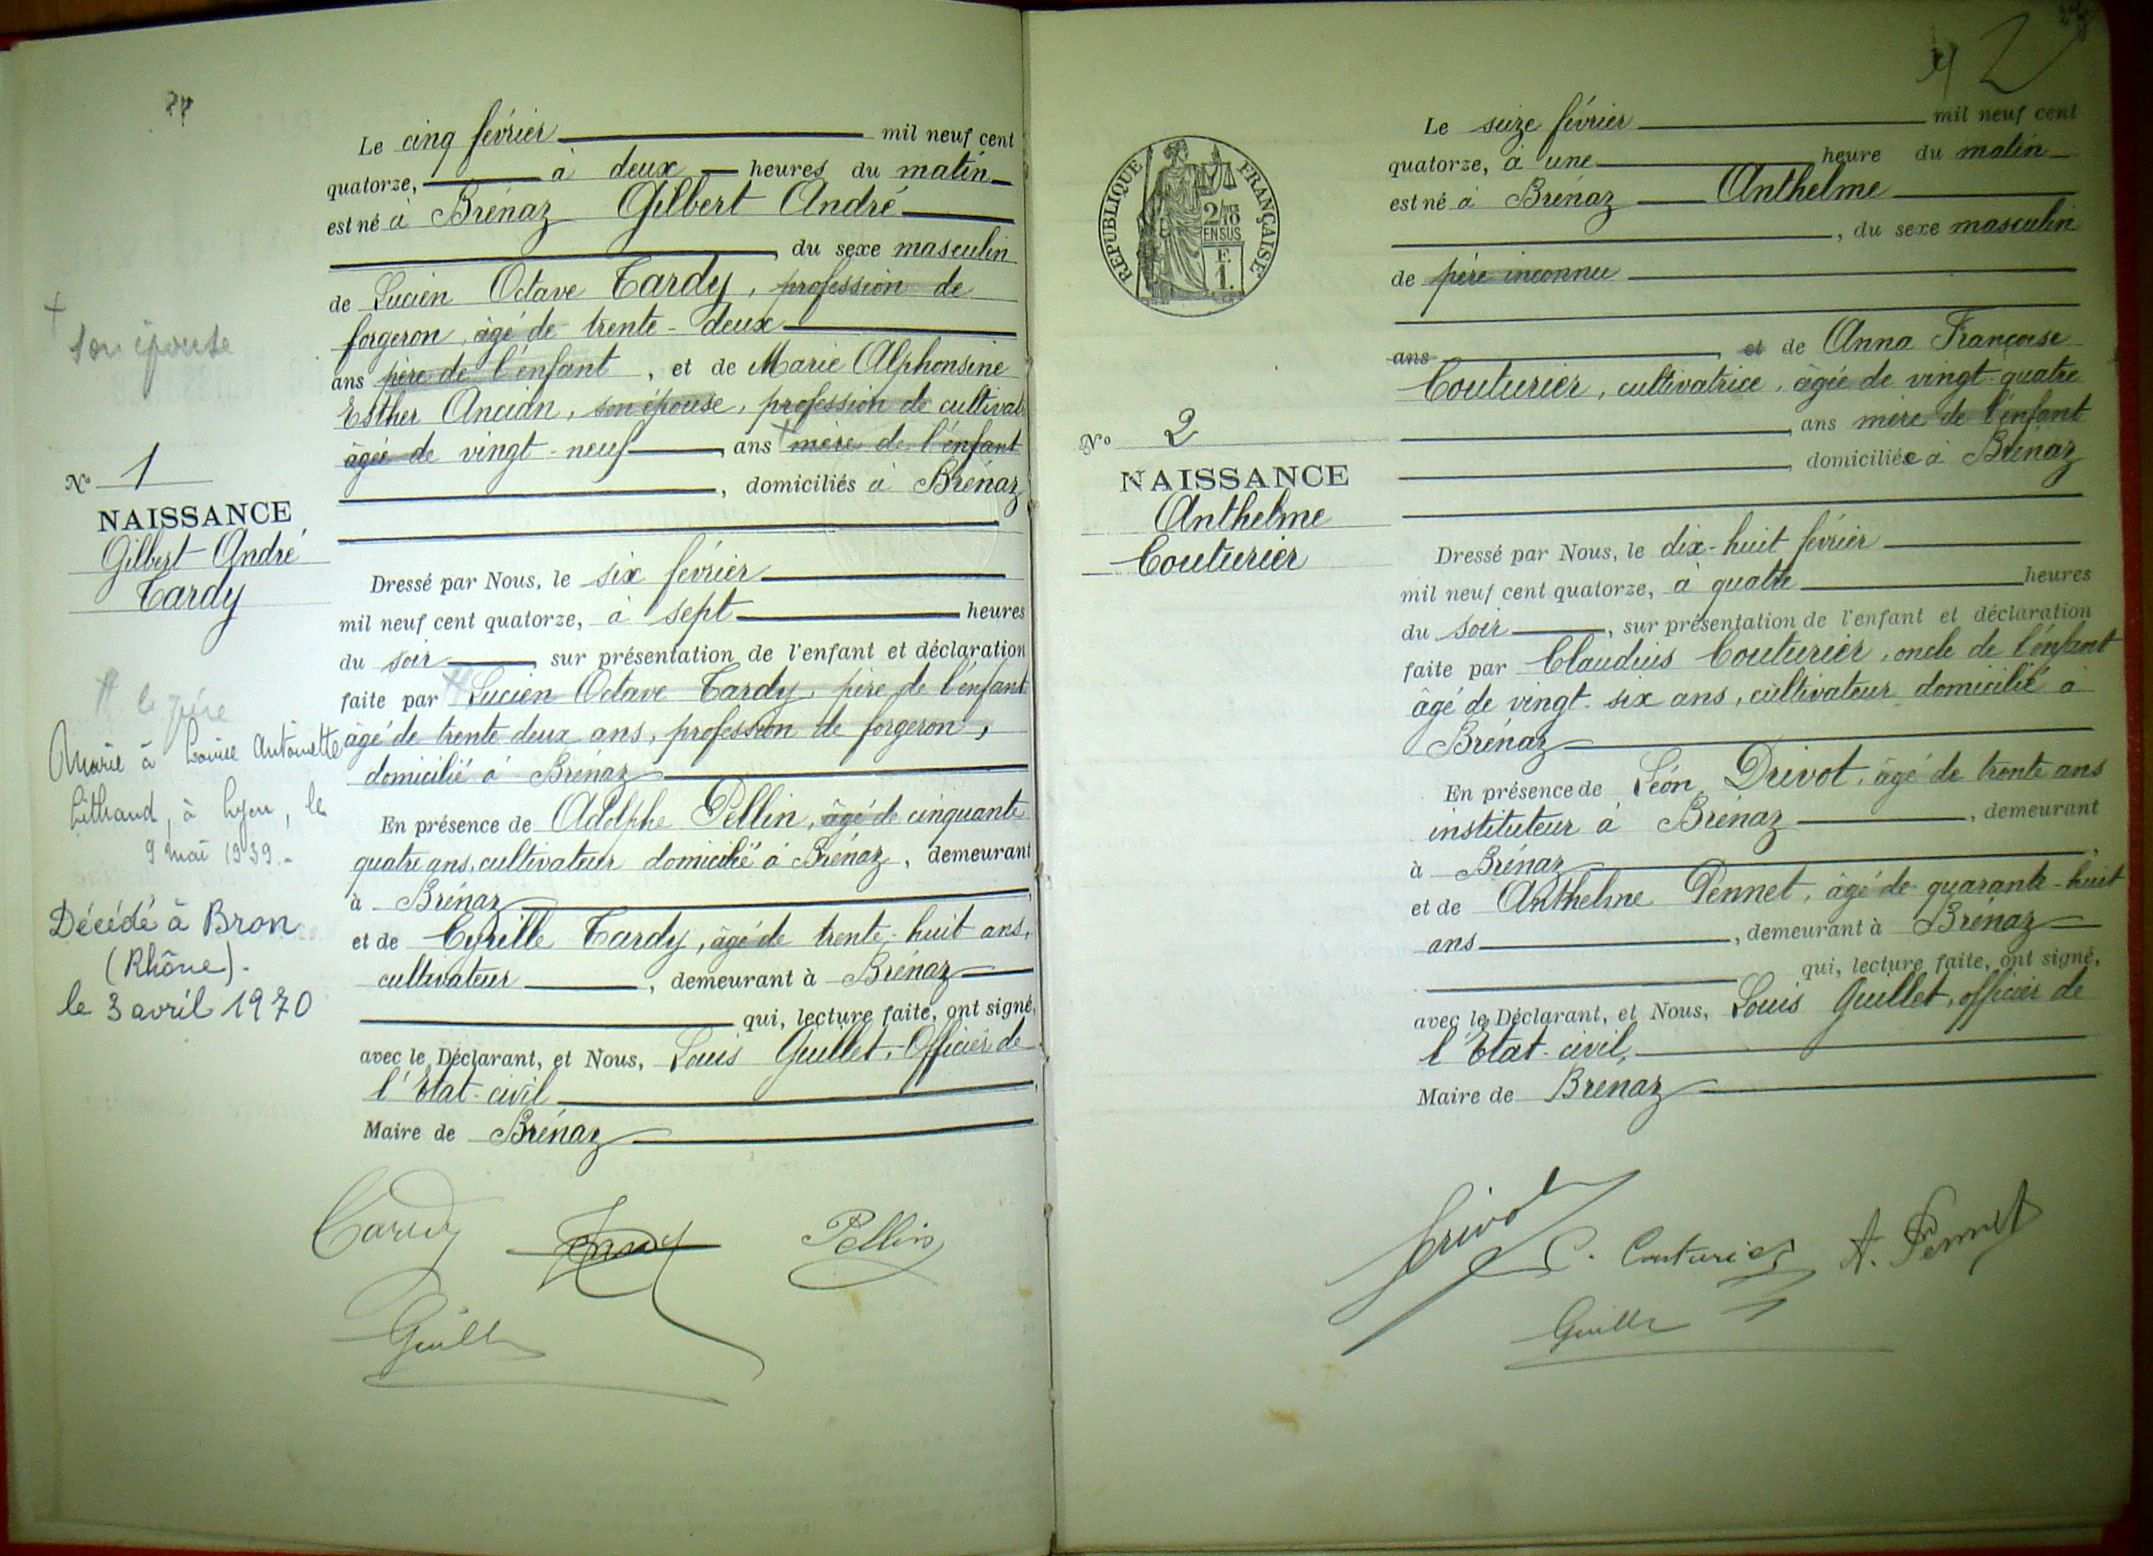 Le cinq février mil neuf cent
quatorze, à deux heures du matin
est né à Brénaz Gilbert André
, du sexe masculin
de Lucien Octave Tardy, profession de
forgeron, âgé de trente-deux
ans père de l'enfant, et de Marie Alphonsine
Esther Ancian, son épouse, profession de cultivat
âgée de vingt-neuf, ans + mère de l'enfant
, domiciliés à Brénaz
Dressé par Nous, le six février
mil neuf cent quatorze, à sept heures
du soir, sur présentation de l'enfant et déclaration
faite par Lucien Octave Tardy, père de l'enfant
âgé de trente deux ans, profession de forgeron,
domicilié à Brénaz
En présence de Adolphe Pellin, âgé de cinquante
quatre ans, cultivateur domicilié à Brénaz, demeurant
à Brénaz
et de Cyrille Tardy, âgé de trente-huit ans,
cultivateur, demeurant à Brénaz
qui, lecture faite, ont signé,
avec le Déclarant, et Nous, Louis Guillet, Officier de
l'Etat-civil
Maire de Brénaz
Tardy Tardy Pellin
Guillet
+
son épouse
No 1
NAISSANCE
Gilbert André
Tardy
le père
Marié à Louise Antoinette
à Lyon, le
9 mai 1939.-
Décédé à Bron
(Rhône).
le 3 avril 1970
2
RÉPUBLIQUE FRANÇAISE
No 2
NAISSANCE
Anthelme
Couturier
Le seize février mil neuf cent
quatorze, à une heure du matin
est né à Brénaz Anthelme
, du sexe masculin
de père inconnu
ans, et de Anna Françoise
Couturier, cultivatrice, âgée de vingt-quatre
, ans mère de l'enfant
, domiciliée à Brénaz
Dressé par Nous, le dix-huit février
mil neuf cent quatorze, à quatre heures
du soir, sur présentation de l'enfant et déclaration
faite par Claudius Couturier, oncle de l'enfant
âgé de vingt-six ans, cultivateur domicilié à
Brénaz
En présence de Léon Drivot, âgé de trente ans
instituteur à Brénaz, demeurant
à Brénaz
et de Anthelme Pennet, âgé de quarante-huit
ans, demeurant à Brénaz
qui, lecture faite, ont signé,
avec le Déclarant, et Nous, Louis Guillet, officier de
l'Etat-civil,
Maire de Brénaz
Drivot C. Couturier A. Pennet
Guillet